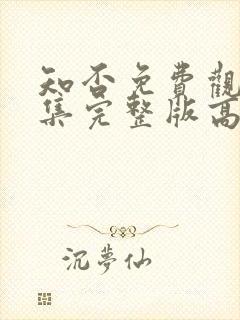 知否免費觀
集完整版高
沉夢仙